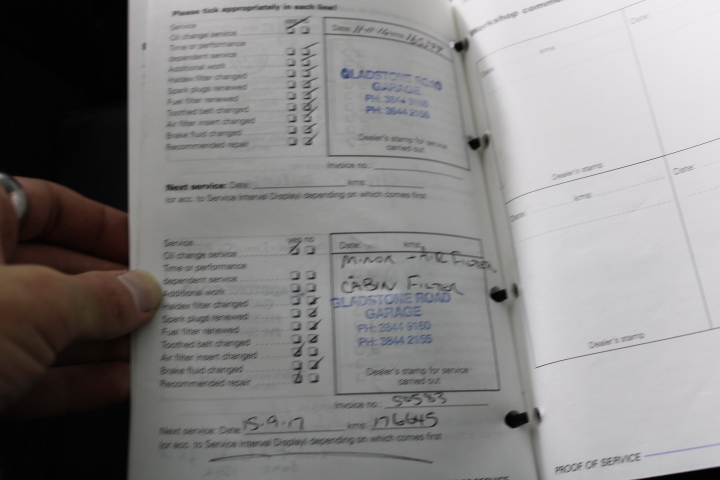 Please tick appropriately in each line!
Service yes no
Oil change service
Time or performance
dependent service
Additional work
Haldex filter changed
Spark plugs renewed
Fuel filter renewed
Toothed belt changed
Air filter insert changed
Brake fluid changed
Recommended repair
Date: kms:
GLADSTONE ROAD
GARAGE
PH: 3844
PH: 3844 2155
Dealer's stamp for service
carried out
Invoice no.:
Next service: Date: kms:
(or acc. to Service Interval Display) depending on which comes first
Service yes no
Oil change service
Time or performance
dependent service
Additional work
Haldex filter changed
Spark plugs renewed
Fuel filter renewed
Toothed belt changed
Air filter insert changed
Brake fluid changed
Recommended repair
Date: kms:
MINOR - AIR FILTER
CABIN FILTER
GLADSTONE ROAD
GARAGE
PH: 3844 9150
PH: 3844 2155
Dealer's stamp for service
carried out
Invoice no.: 50583
Next service: Date: 15.9.17 kms: 176645
(or acc. to Service Interval Display) depending on which comes first
Workshop
Date: kms: Date:
Dealer's stamp
Date: kms: Date:
Dealer's stamp
PROOF OF SERVICE